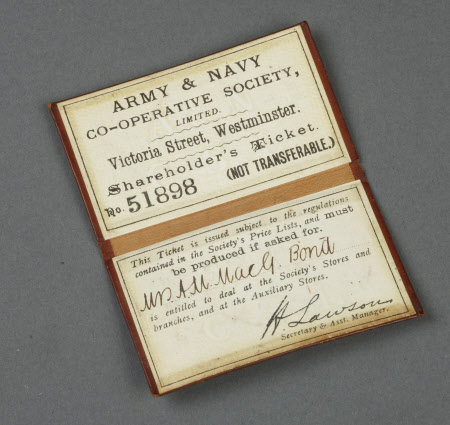 ARMY & NAVY
CO-OPERATIVE SOCIETY,
LIMITED.
Victoria Street, Westminster.
Shareholder's Ticket.
No. 51898 (NOT TRANSFERABLE.)
This Ticket is issued subject to the regulations
contained in the Society's Price Lists, and must
be produced if asked for.
Mrs A.M. MacG. Bond
is entitled to deal at the Society's Stores and
branches, and at the Auxiliary Stores.
H. Lawson
Secretary & Asst. Manager.